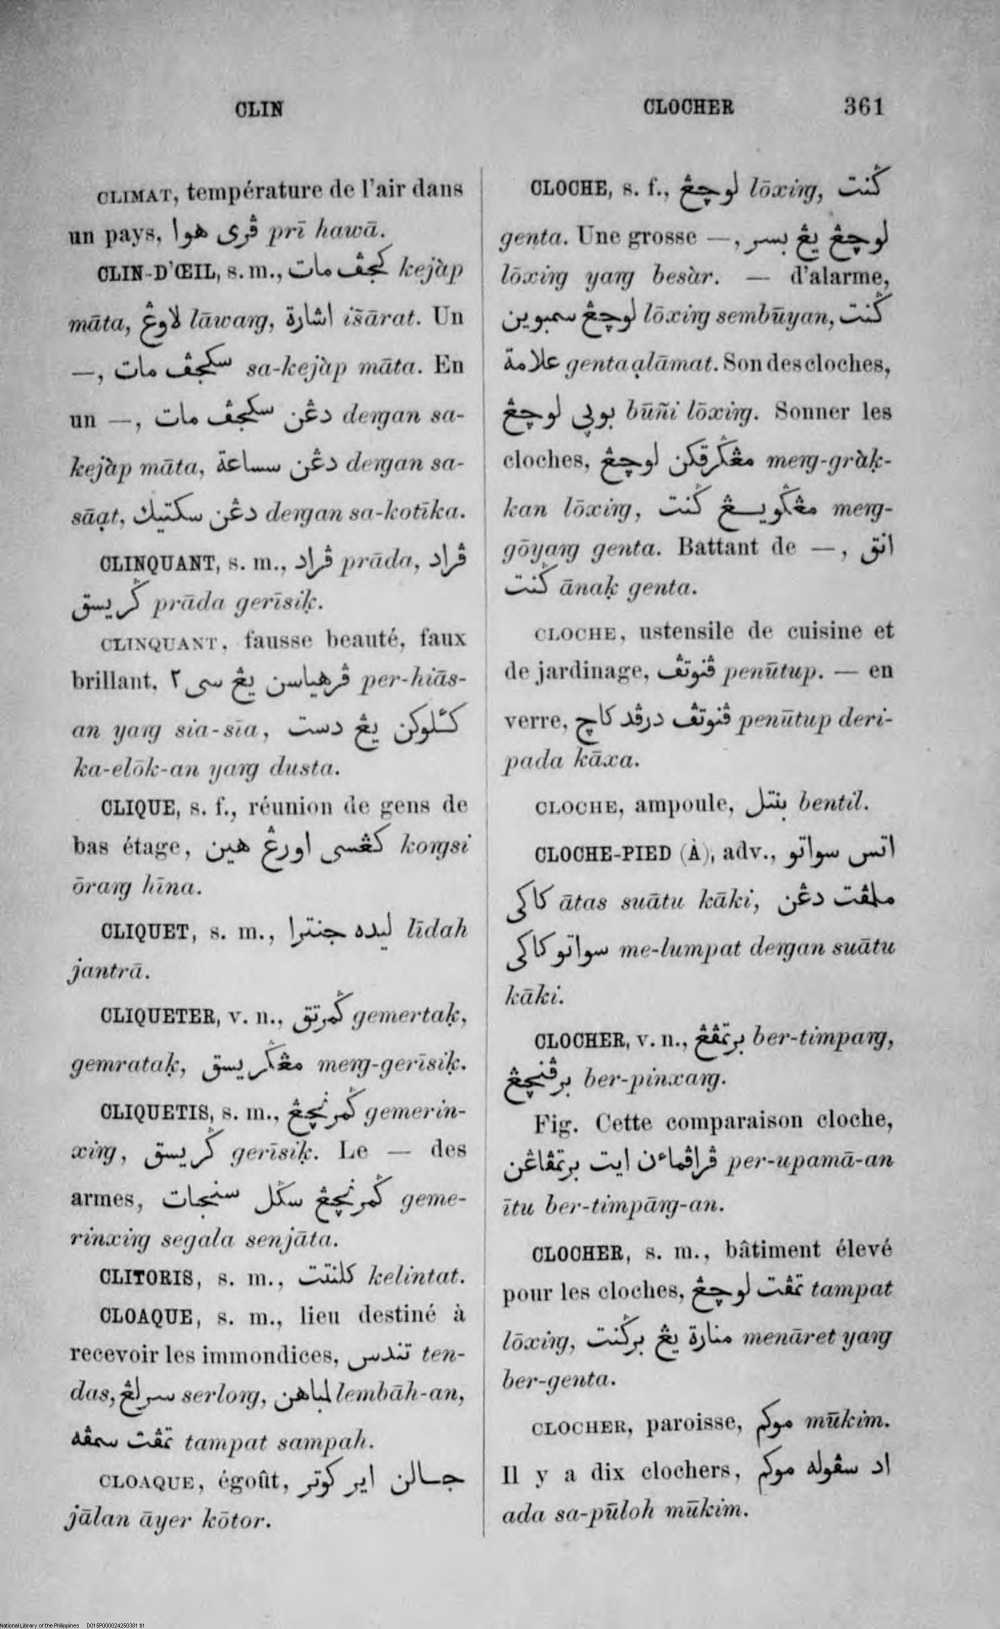 CLIN
CLOCHER 361
CLIMAT, température de l'air dans
un pays, ڤرى هوا prī hawā.
CLIN-D'ŒIL, s. m., کجڤ مات kejàp
māta, لاوڠ lāwaŋ, اشارة išārat. Un
—, سکجڤ مات sa-kejàp māta. En
un —, دڠن سکجڤ مات deŋan sa-
kejàp māta, دڠن سساعة deŋan sa-
sāạt, دڠن سکتيك deŋan sa-kotīka.
CLINQUANT, s. m., ڤراد prāda, ڤراد
ݢريسق prāda gerīsiḳ.
CLINQUANT, fausse beauté, faux
brillant, ڤرهياسن يڠ سى٢ per-hiās-
an yaŋ sia-sīa, کئلوکن يڠ دست
ka-elōk-an yaŋ dusta.
CLIQUE, s. f., réunion de gens de
bas étage, کڠسى اورڠ هين koŋsi
ōraŋ hīna.
CLIQUET, s. m., ليده جنترا līdah
jantrā.
CLIQUETER, v. n., ݢمرتق gemertaḳ,
gemrataḳ, مڠݢريسق meŋ-gerīsiḳ.
CLIQUETIS, s. m., ݢمرنچڠ gemerin-
xiŋ, ݢريسق gerīsiḳ. Le — des
armes, ݢمرنچڠ سݢل سنجات geme-
rinxiŋ segala senjāta.
CLITORIS, s. m., کلنتت kelintat.
CLOAQUE, s. m., lieu destiné à
recevoir les immondices, تندس ten-
das, سرلڠ serloŋ, لمباهن lembāh-an,
تمڤت سمڤه tampat sampah.
CLOAQUE, égoût, جالن اير کوتر
jālan āyer kōtor.
CLOCHE, s. f., لوچڠ lōxiŋ, ݢنت
genta. Une grosse —, لوچڠ يڠ بسر
lōxiŋ yaŋ besàr. — d'alarme,
لوچڠ سمبوين lōxiŋ sembūyan, ݢنت
علامة genta ạlāmat. Son des cloches,
بوڽي لوچڠ būñi lōxiŋ. Sonner les
cloches, مڠݢرقکن لوچڠ meŋ-gràḳ-
kan lōxiŋ, مڠݢويڠ ݢنت meŋ-
gōyaŋ genta. Battant de —, انق
ݢنت ānaḳ genta.
CLOCHE, ustensile de cuisine et
de jardinage, ڤنوتڤ penūtup. — en
verre, ڤنوتڤ درڤد کاچ penūtup deri-
pada kāxa.
CLOCHE, ampoule, بنتل bentil.
CLOCHE-PIED (À), adv., اتس سواتو
کاکى ātas suātu kāki, ملمڤت دڠن
سواتو کاکى me-lumpat deŋan suātu
kāki.
CLOCHER, v. n., برتمڤڠ ber-timpaŋ,
برڤنچڠ ber-pinxaŋ.
Fig. Cette comparaison cloche,
ڤراڤماءن ايت برتمڤاڠن per-upamā-an
ītu ber-timpāŋ-an.
CLOCHER, s. m., bâtiment élevé
pour les cloches, تمڤت لوچڠ tampat
lōxiŋ, منارة يڠ برݢنت menāret yaŋ
ber-genta.
CLOCHER, paroisse, موکم mūkim.
Il y a dix clochers, اد سڤوله موکم
ada sa-pūloh mūkim.
National Library of the Philippines